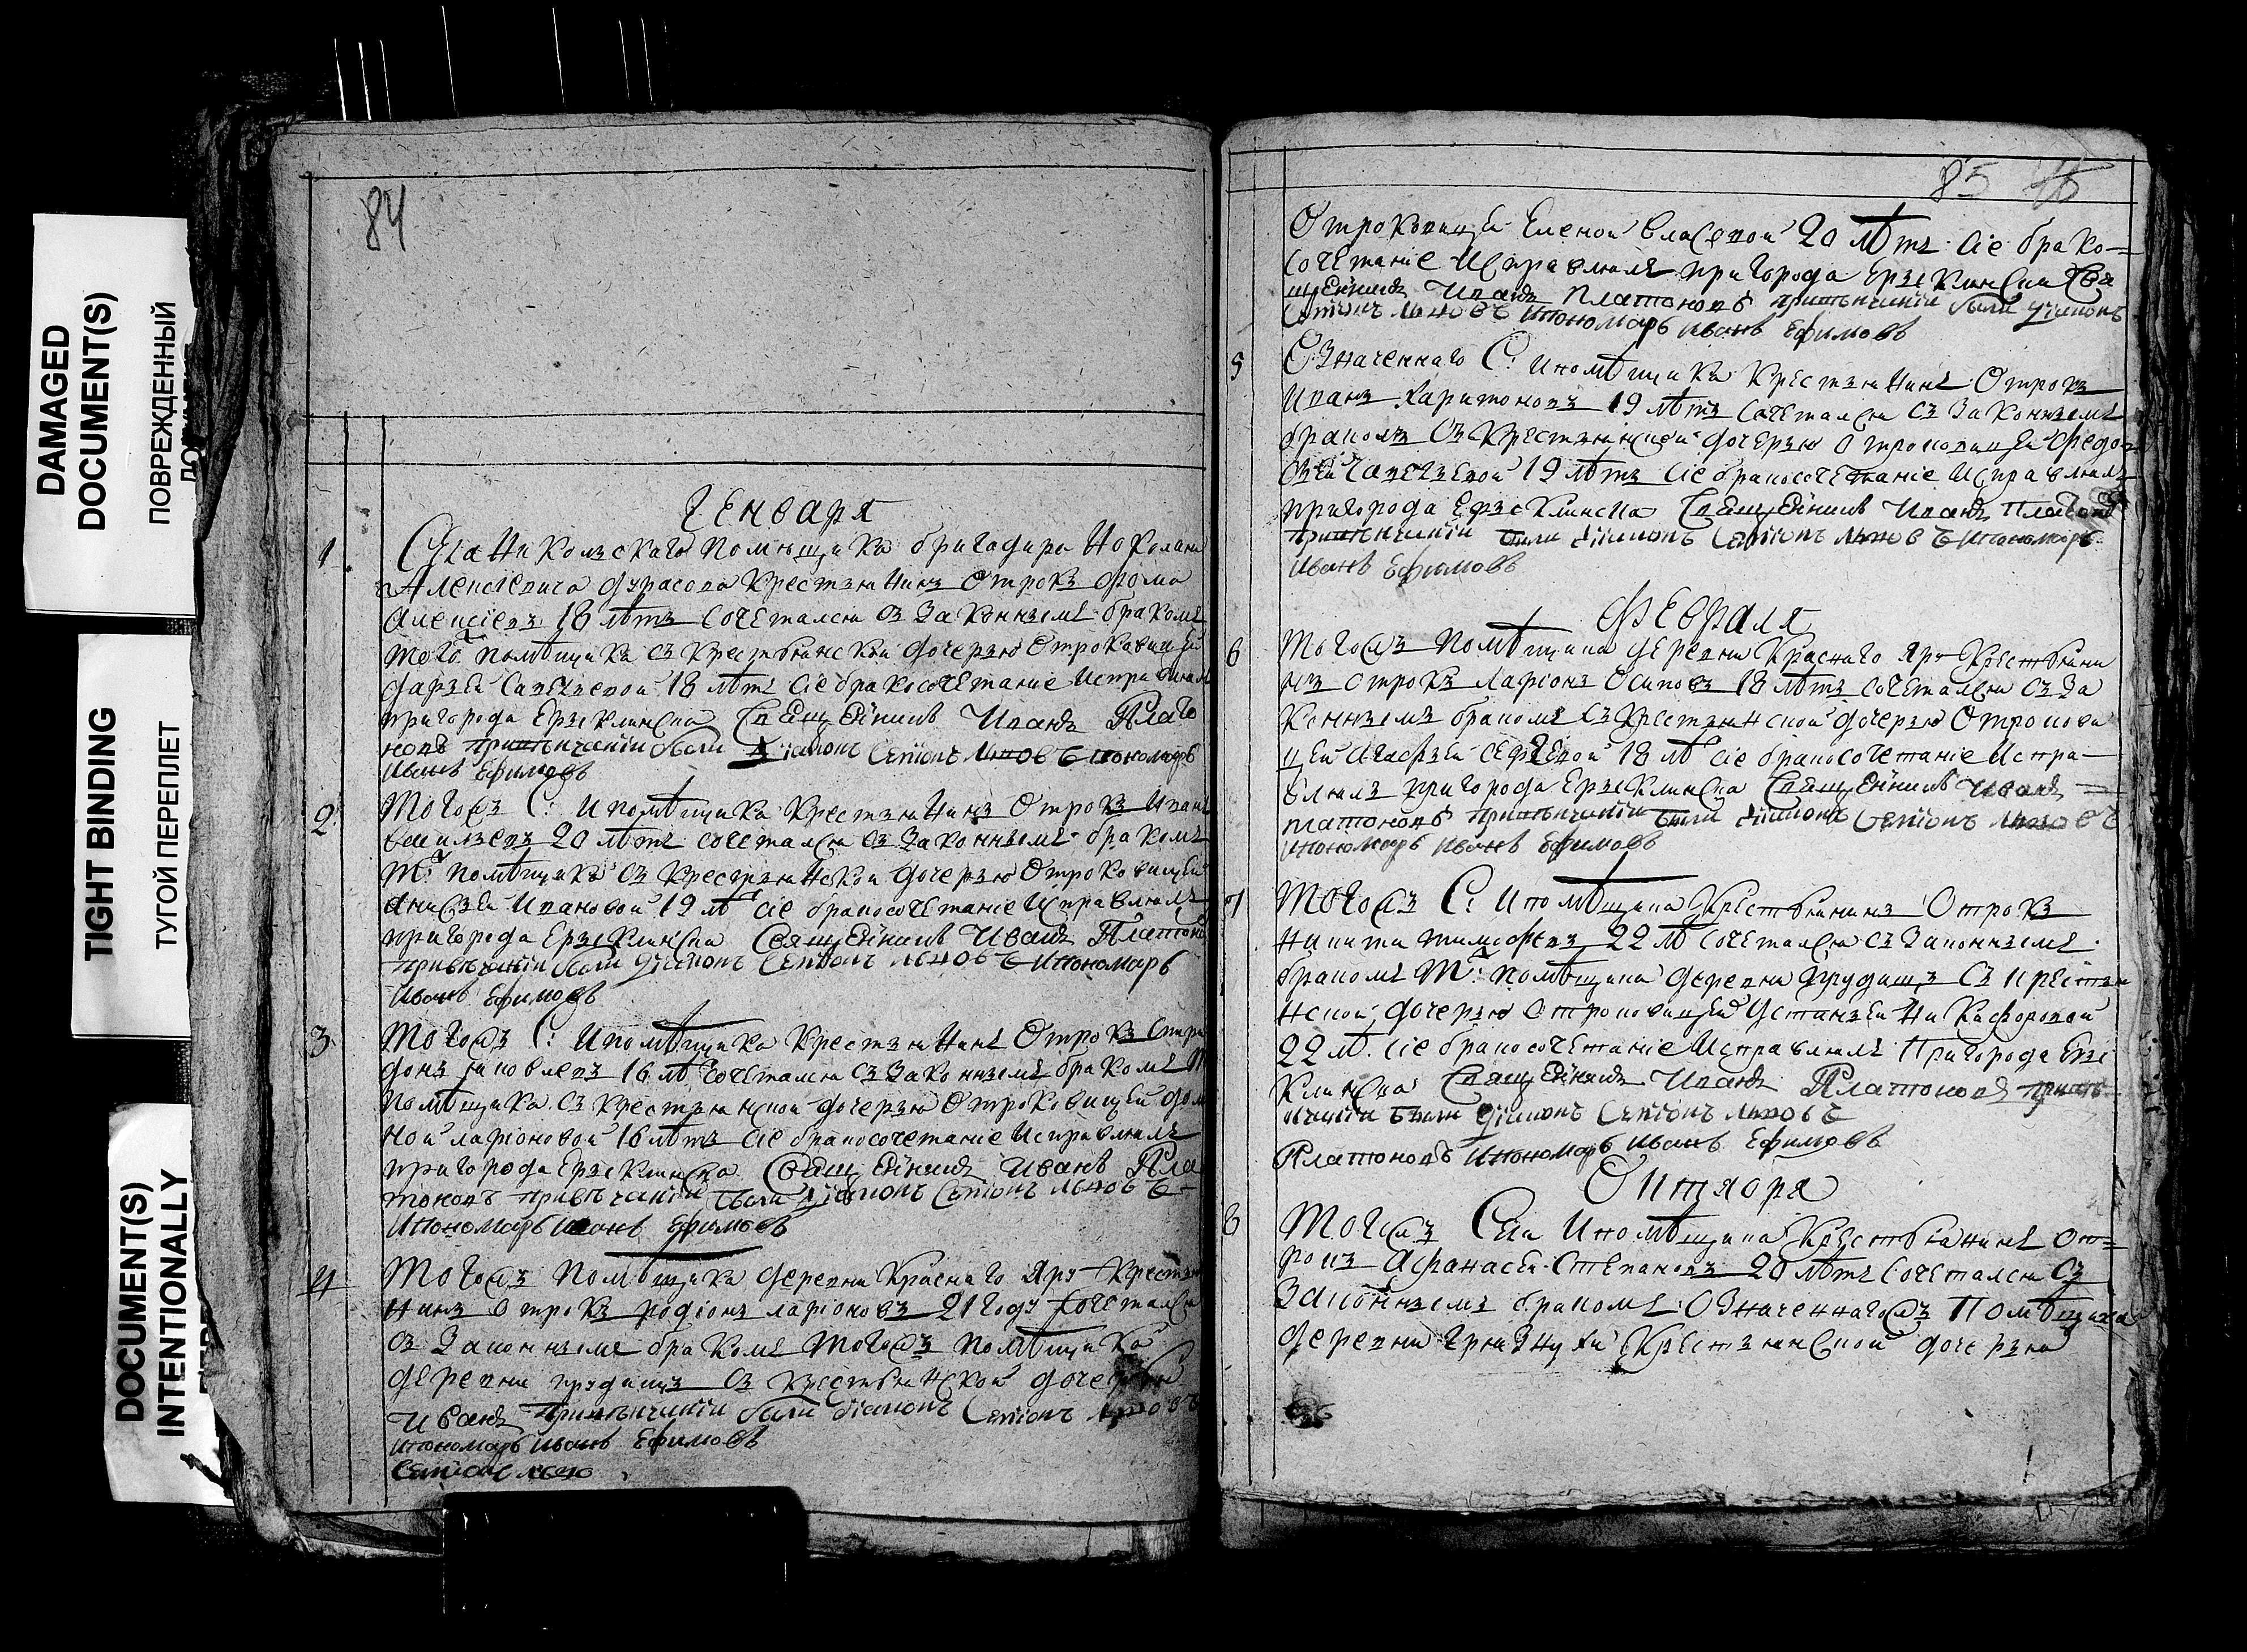 DAMAGED
DOCUMENT(S)
ПОВРЕЖДЕННЫЙ
TIGHT BINDING
ТУГОЙ ПЕРЕПЛЕТ
DOCUMENT(S)
INTENTIONALLY
84
Генваря
1 Села Никольскаго помещика бригадира
Алексіевича Дурасова крестьянинъ отрокъ Фома
Алексіевъ 18 лѣтъ сочетался съ законнымъ бракомъ
того помѣщика съ крестьянской дочерью отроковицей
Дарьей Савельевой 18 лѣтъ сіе бракосочетаніе исправлялъ
пригорода Ерыклинска Священникъ Иванъ Плато
новъ привѣнчаніи были діаконъ Семіонъ Львовъ Ипономарь
Иванъ Ефимовъ
2 Тогожъ С: и помѣщика крестьянинъ отрокъ Иванъ
Васильевъ 20 лѣтъ сочетался съ законнымъ бракомъ
тг: помѣщика съ крестьянской дочерью отроковицей
Анисьей Ивановой 19 лѣ сіе бракосочетаніе исправлялъ
пригорода Ерыклинска Священникъ Иванъ Платоно
привѣнчаніи были діаконъ Семіонъ Львовъ Ипономарь
Иванъ Ефимовъ
3 Тогожъ С: и помѣщика крестьянинъ отрокъ Спири
донъ Іаковлевъ 16 лѣ сочетался съ законнымъ бракомъ
помѣщика съ крестьянской дочерью отроковицей Дом
ной Ларіоновой 16 лѣтъ сіе бракосочетаніе исправлялъ
пригорода Ерыклинска Священникъ Иванъ Пла
тоновъ привѣнчаніи были діаконъ Семіонъ Львовъ
Ипономарь Иванъ Ефимовъ
4 Тогожъ помѣщика деревни Краснаго Яру крестьян
нинъ отрокъ Родіонъ Ларіоновъ 21 году сочетался
съ законнымъ бракомъ тогожъ помѣщика
деревни Грудищъ съ крестьянской дочерью
Иванъ привѣнчаніи были діаконъ Семіонъ Львовъ
Ипономарь Иванъ Ефимовъ
Семіонъ
85
Отроковицей Еленой Власовой 20 лѣтъ сіе брако-
сочетаніе исправлялъ пригорода Ерыклинска Свя
щенникъ Иванъ Платоновъ привѣнчаніи были діаконъ
Семіонъ Львовъ Ипономарь Иванъ Ефимовъ
5 Означеннаго С: и помѣщика крестьянинъ отрокъ
Иванъ Харитоновъ 19 лѣтъ сочетался съ законнымъ
бракомъ съ крестьянской дочерью отроковицей Федо-
сьей Савельевой 19 лѣтъ сіе бракосочетаніе исправлялъ
пригорода Ерыклинска Священникъ Иванъ Платоновъ
привѣнчаніи были діаконъ Семіонъ Львовъ Ипономарь
Иванъ Ефимовъ
Февраля
6 Тогожъ помѣщика деревни Краснаго Яру крестьяни
нъ отрокъ Ларіонъ Осиповъ 18 лѣтъ сочетался съ за
коннымъ бракомъ съ крестьянской дочерью отрокови
цей Агафьей 18 лѣ сіе бракосочетаніе испра-
влялъ пригорода Ерыклинска Священникъ Иванъ
Платоновъ привѣнчаніи были діаконъ Семіонъ Львовъ
Ипономарь Иванъ Ефимовъ
7 Тогожъ С: и помѣщика крестьянинъ отрокъ
Никита Тимофѣевъ 22 лѣ сочетался съ законнымъ
бракомъ тг: помѣщика деревни Грудищъ съ крестья
нской дочерью отроковицей Устиньей Никифоровой
22 лѣ. сіе бракосочетаніе исправлялъ пригорода Еры
клинска Священникъ Иванъ Платоновъ привѣ
нчаніи были діаконъ Семіонъ Львовъ
Платоновъ Ипономарь Иванъ Ефимовъ
Октября
8 Тогожъ Села и помѣщика крестьянинъ от-
рокъ Афанасей Степановъ 20 лѣтъ сочетался съ
законнымъ бракомъ означеннагожъ помѣщика
деревни Грязнухи крестьянской дочерью